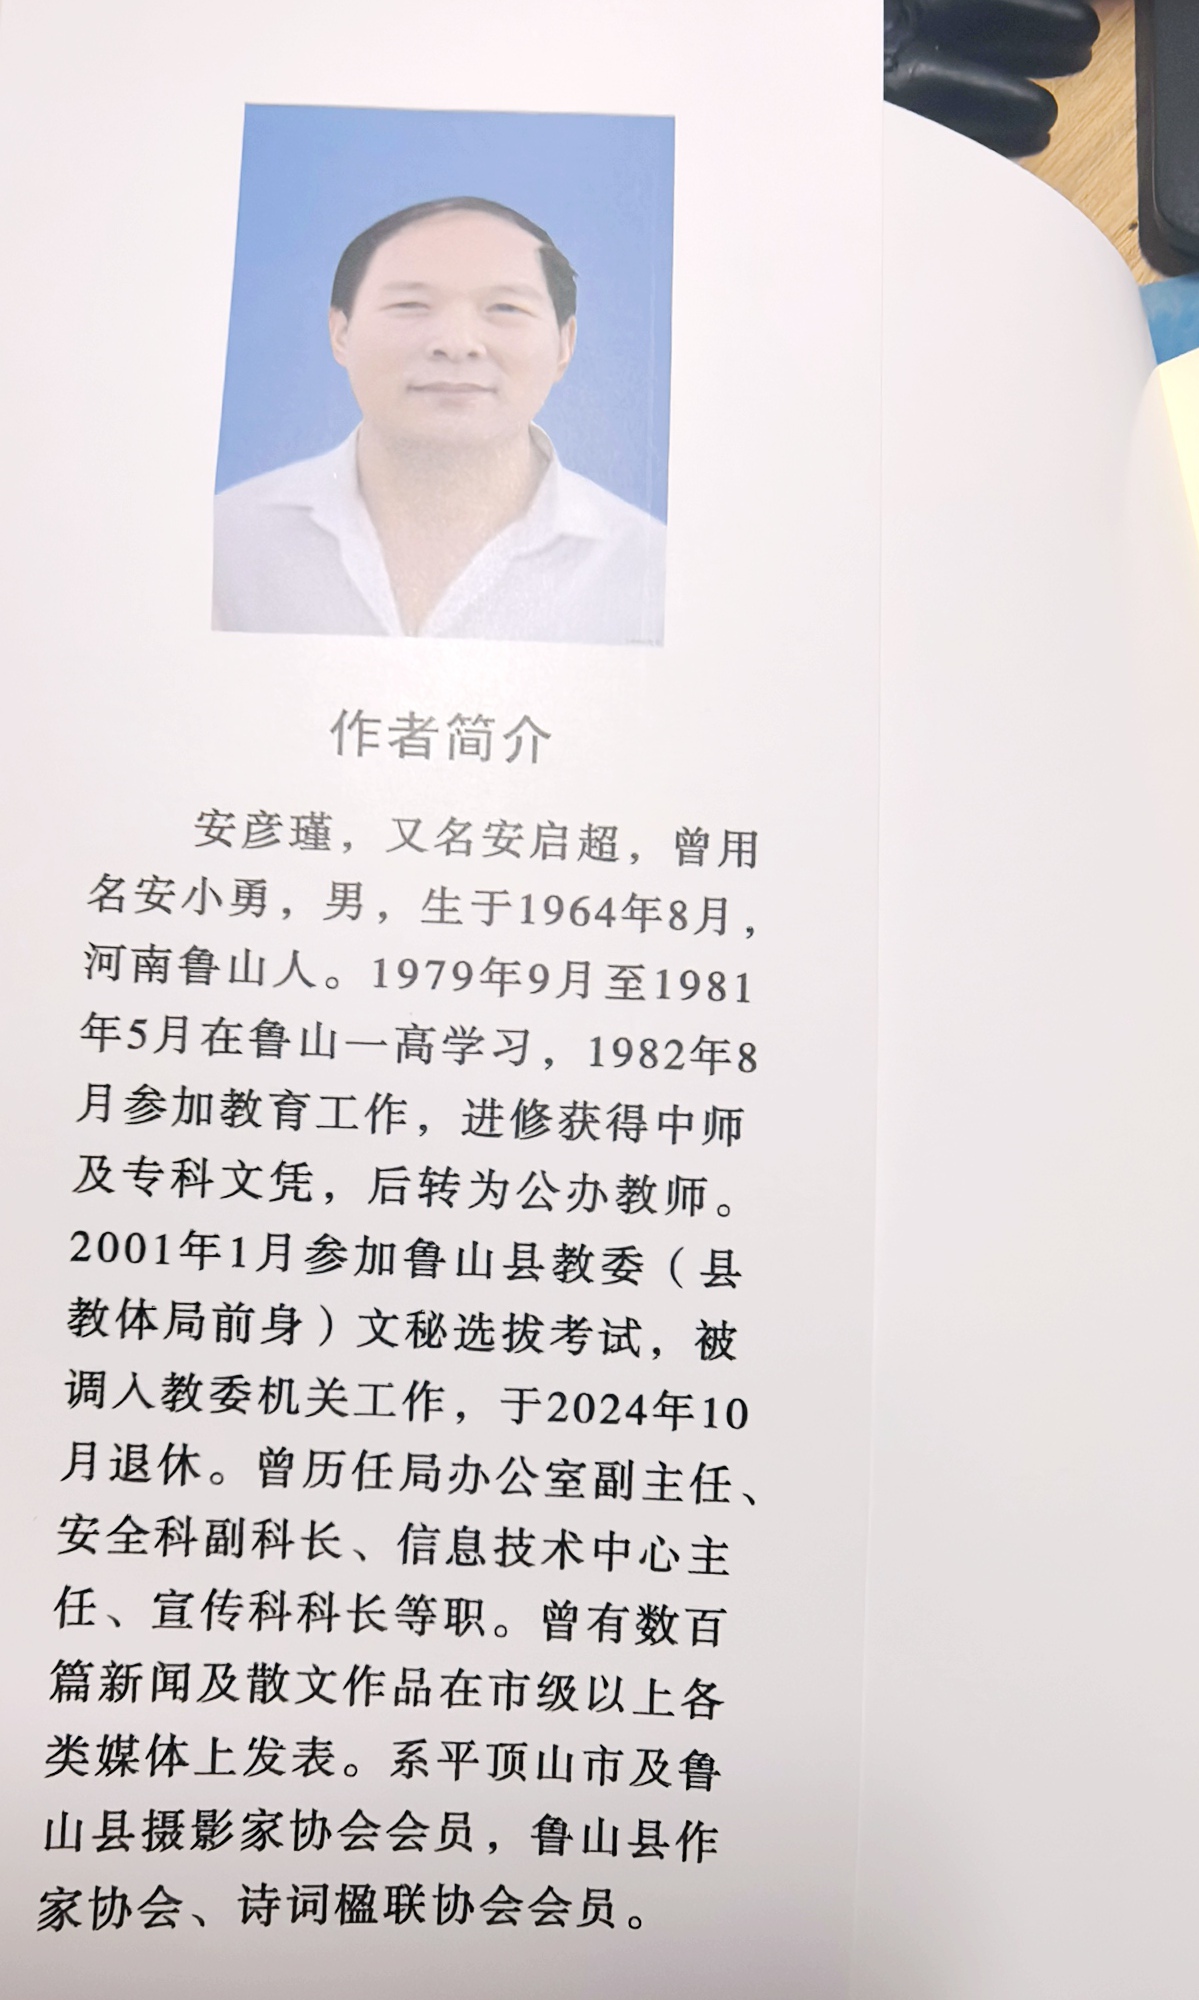 作者简介
安彦瑾，又名安启超，曾用
名安小勇，男，生于1964年8月，
河南鲁山人。1979年9月至1981
年5月在鲁山一高学习，1982年8
月参加教育工作，进修获得中师
及专科文凭，后转为公办教师。
2001年1月参加鲁山县教委（县
教体局前身）文秘选拔考试，被
调入教委机关工作，于2024年10
月退休。曾历任局办公室副主任、
安全科副科长、信息技术中心主
任、宣传科科长等职。曾有数百
篇新闻及散文作品在市级以上各
类媒体上发表。系平顶山市及鲁
山县摄影家协会会员，鲁山县作
家协会、诗词楹联协会会员。